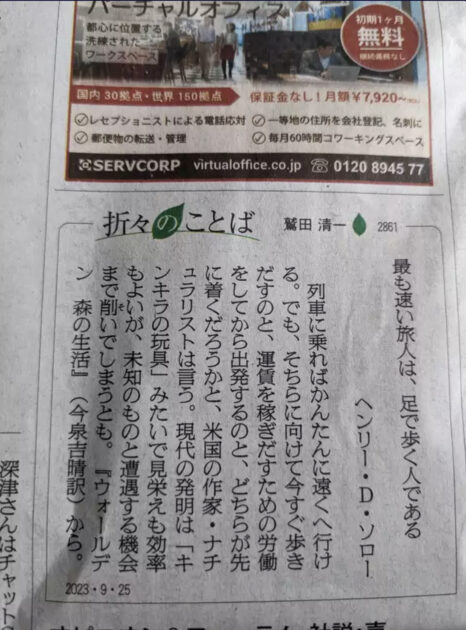 バーチャルオフィス
都心に位置する
洗練された
ワークスペース
初期1ヶ月
無料
国内 30拠点・世界 150拠点
保証金なし!月額¥7,920~
レセプショニストによる電話応対
一等地の住所を会社登記、名刺に
郵便物の転送・管理
毎月60時間コワーキングスペース
SERVCORP
virtualoffice.co.jp
0120 8945 77
折々のことば
鷲田 清一
2861
最も速い旅人は、足で歩く人である
ヘンリー・D・ソロー
列車に乗ればかんたんに遠くへ行け
る。でも、そちらに向けて今すぐ歩き
だすのと、運賃を稼ぎだすための労働
をしてから出発するのと、どちらが先
に着くだろうかと、米国の作家・ナチ
ュラリストは言う。現代の発明は「キ
ンキラの玩具」みたいで見栄えも効率
もよいが、未知のものと遭遇する機会
まで削いでしまうとも。『ウォールデ
ン 森の生活』(今泉吉晴訳)から。
そ
2023・9・25
深津さんはチャット